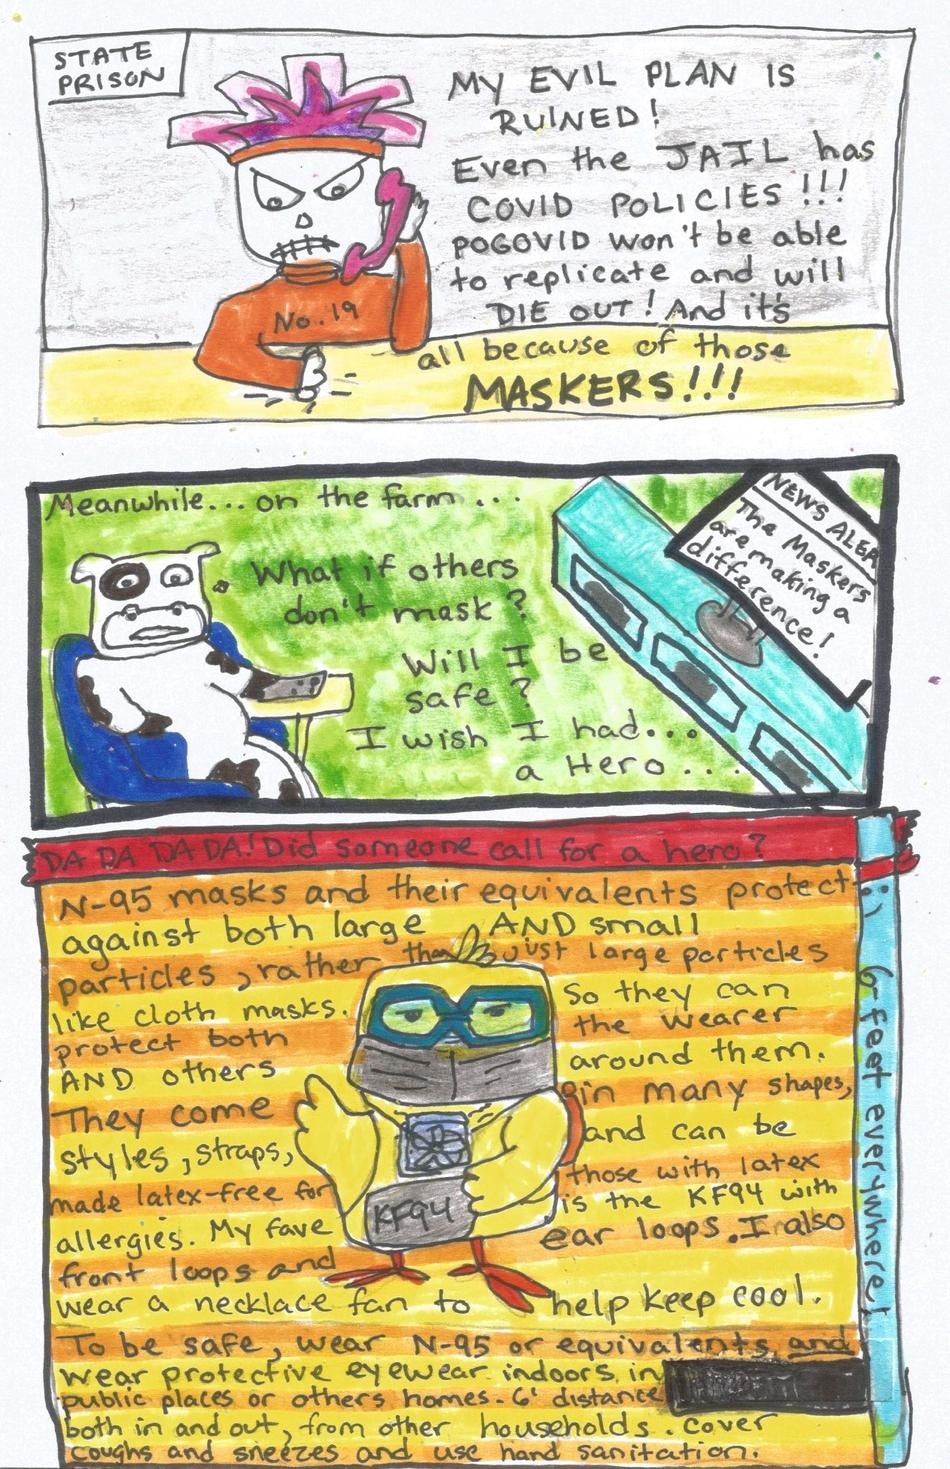 STATE
PRISON
MY EVIL PLAN IS
RUINED!
Even the JAIL has
COVID POLICIES!!!
POGOVID won't be able
to replicate and will
DIE OUT! And it's
all because of those
MASKERS!!!
No. 19
Meanwhile... on the farm ...
What if others
don't mask?
Will I be
safe?
I wish I had...
a Hero...
NEWS ALER
The Maskers
are making a
difference!
DA DA DA DA! Did someone call for a hero?
N-95 masks and their equivalents protect
against both large AND small
particles, rather than just large particles
like cloth masks. So they can
protect both the wearer
AND others around them.
They come in many shapes,
styles, straps, and can be
made latex-free for those with latex
allergies. My fave is the KF94 with
front loops and ear loops. I also
wear a necklace fan to help keep cool.
KF94
To be safe, wear N-95 or equivalents and
wear protective eyewear indoors, in
public places or others homes. 6' distance
both in and out, from other households. Cover
coughs and sneezes and use hand sanitation.
:) 6-feet everywhere!